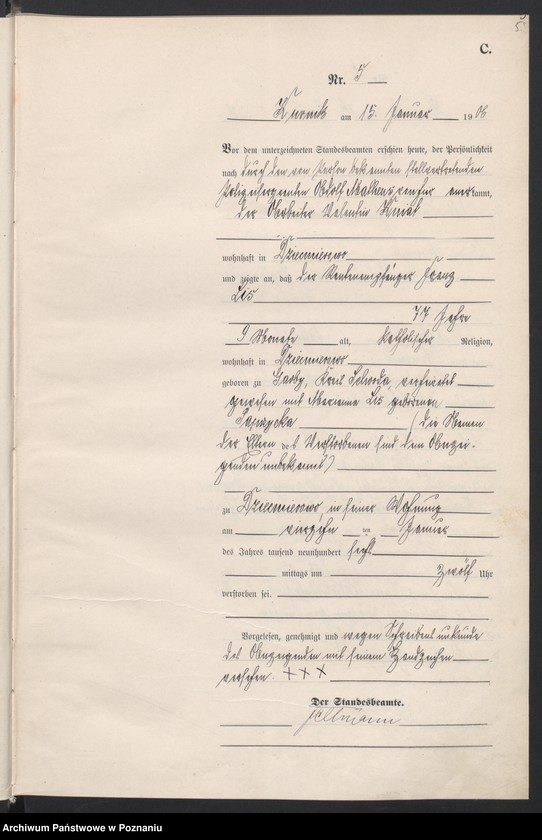 5
C.
Nr. 5
Kurnik am 15. Januar 1906
Vor dem unterzeichneten Standesbeamten erschien heute, der Persönlichkeit
nach durch den von Person bekannten stellvertretenden
Polizeisergeanten Adolf anerkannt,
der Arbeiter Valentin
wohnhaft in Dziecmierowo
und zeigte an, daß der Rentenempfänger Franz
Lis
77 Jahre
9 Monate alt, katholischer Religion,
wohnhaft in Dziecmierowo
geboren zu Gadby, Kreis Schroda, verheiratet
gewesen mit Marianna Lis geborenen
(die Namen
der Eltern des Verstorbenen sind dem Anzei-
genden unbekannt)
zu Dziecmierowo, in seiner Wohnung
am vierzehn ten Januar
des Jahres tausend neunhundert sechs
mittags um zwölf Uhr
verstorben sei.
Vorgelesen, genehmigt und wegen Schreibensunkunde
des Anzeigenden mit seinem Handzeichen
versehen. +++
Der Standesbeamte.
Archiwum Państwowe w Poznaniu